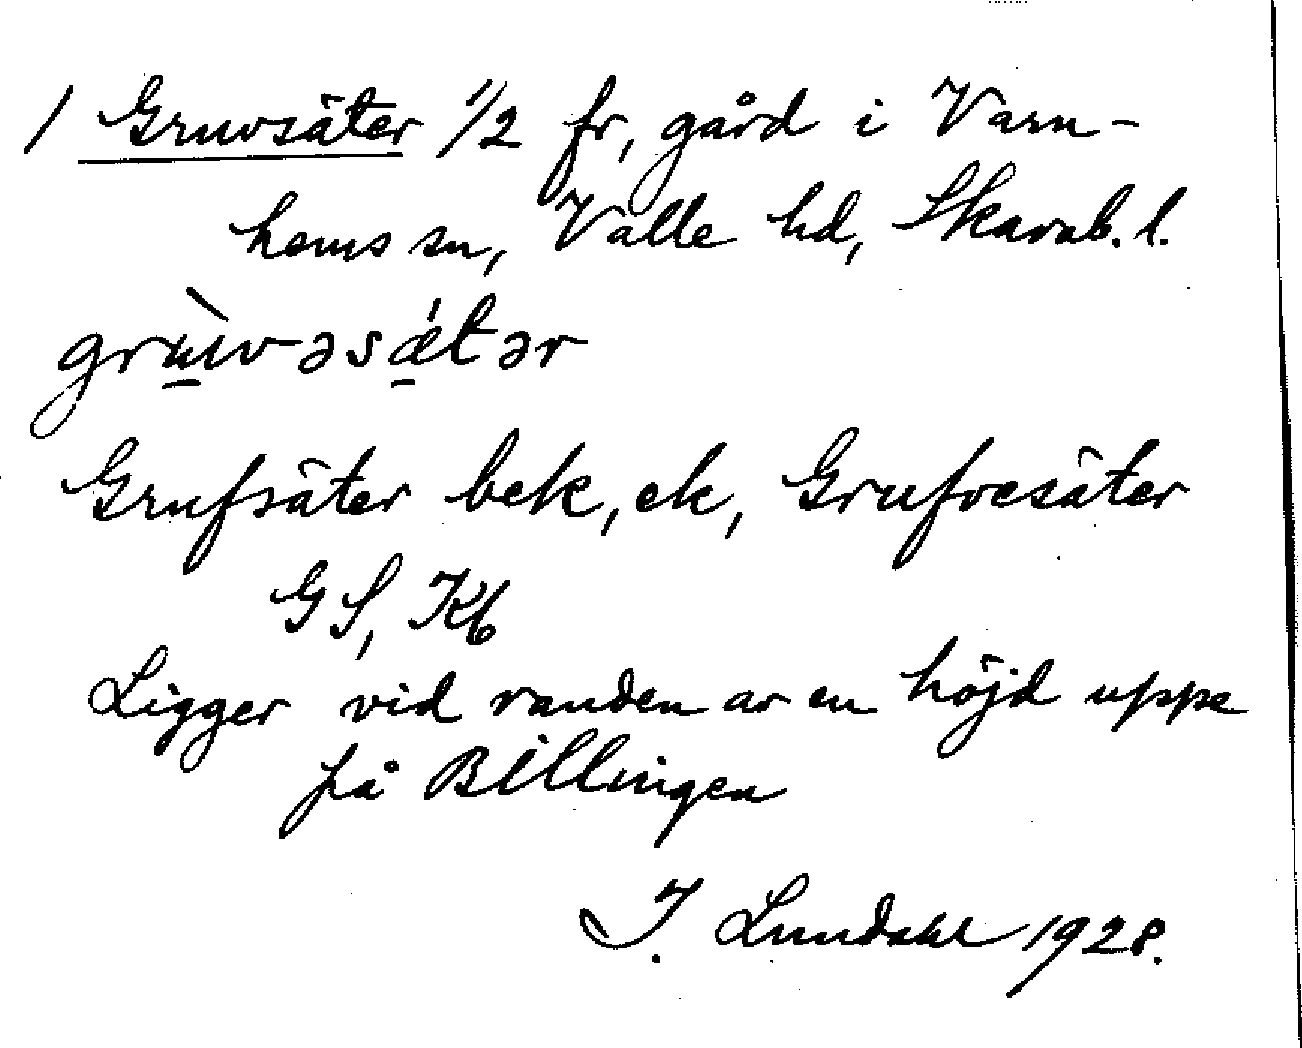 1 Gruvsäter 1/2 fr, gård i Varn-
hems sn, Valle hd, Skarab. l.
grùvəsǽtər
Grufsäter bek, ek, Grufvesäter
GS, Kb
Ligger vid randen av en höjd uppe
på Billingen
I. Lundahl 1928.